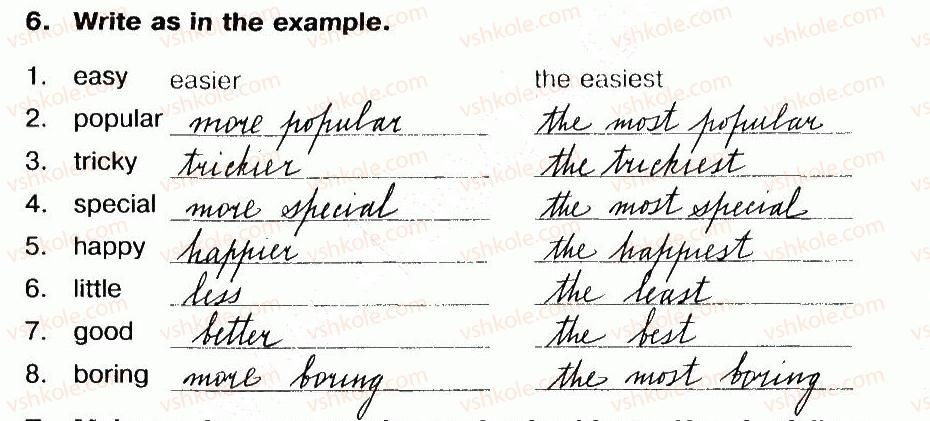 6. Write as in the example.
1. easy easier the easiest
2. popular more popular the most popular
3. tricky trickier the trickiest
4. special more special the most special
5. happy happier the happiest
6. little less the least
7. good better the best
8. boring more boring the most boring
vshkole.com